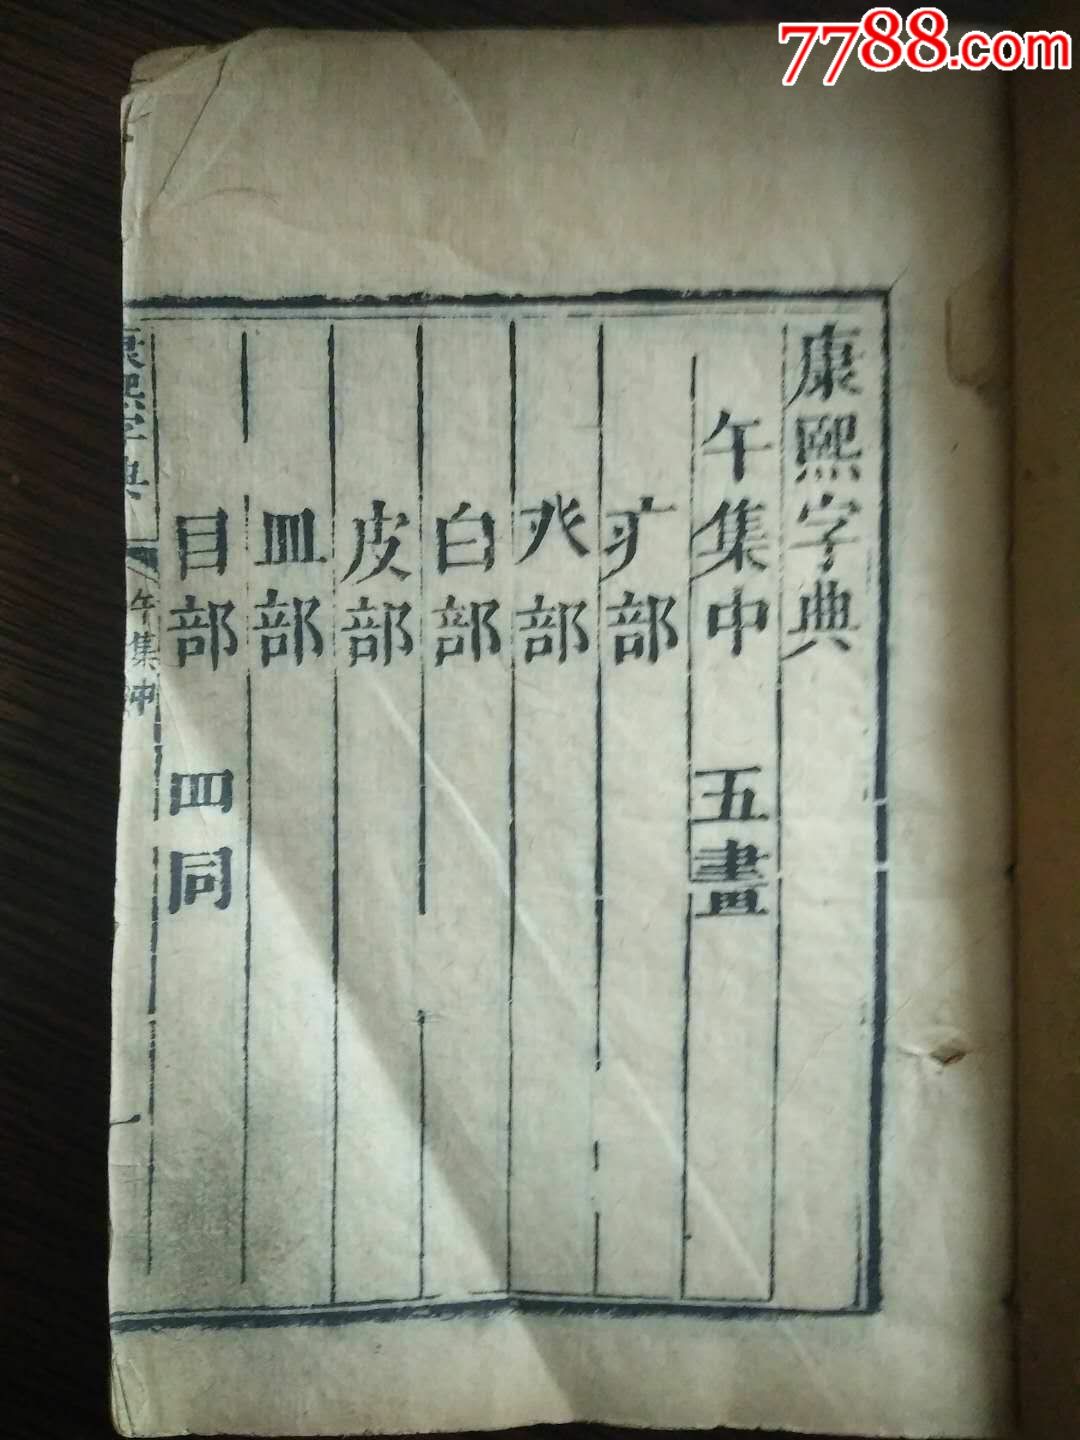 7788.com
康熙字典
午集中 五畫
疒部
癶部
白部
皮部
皿部
目部 罒同
康熙字典 午集中 一